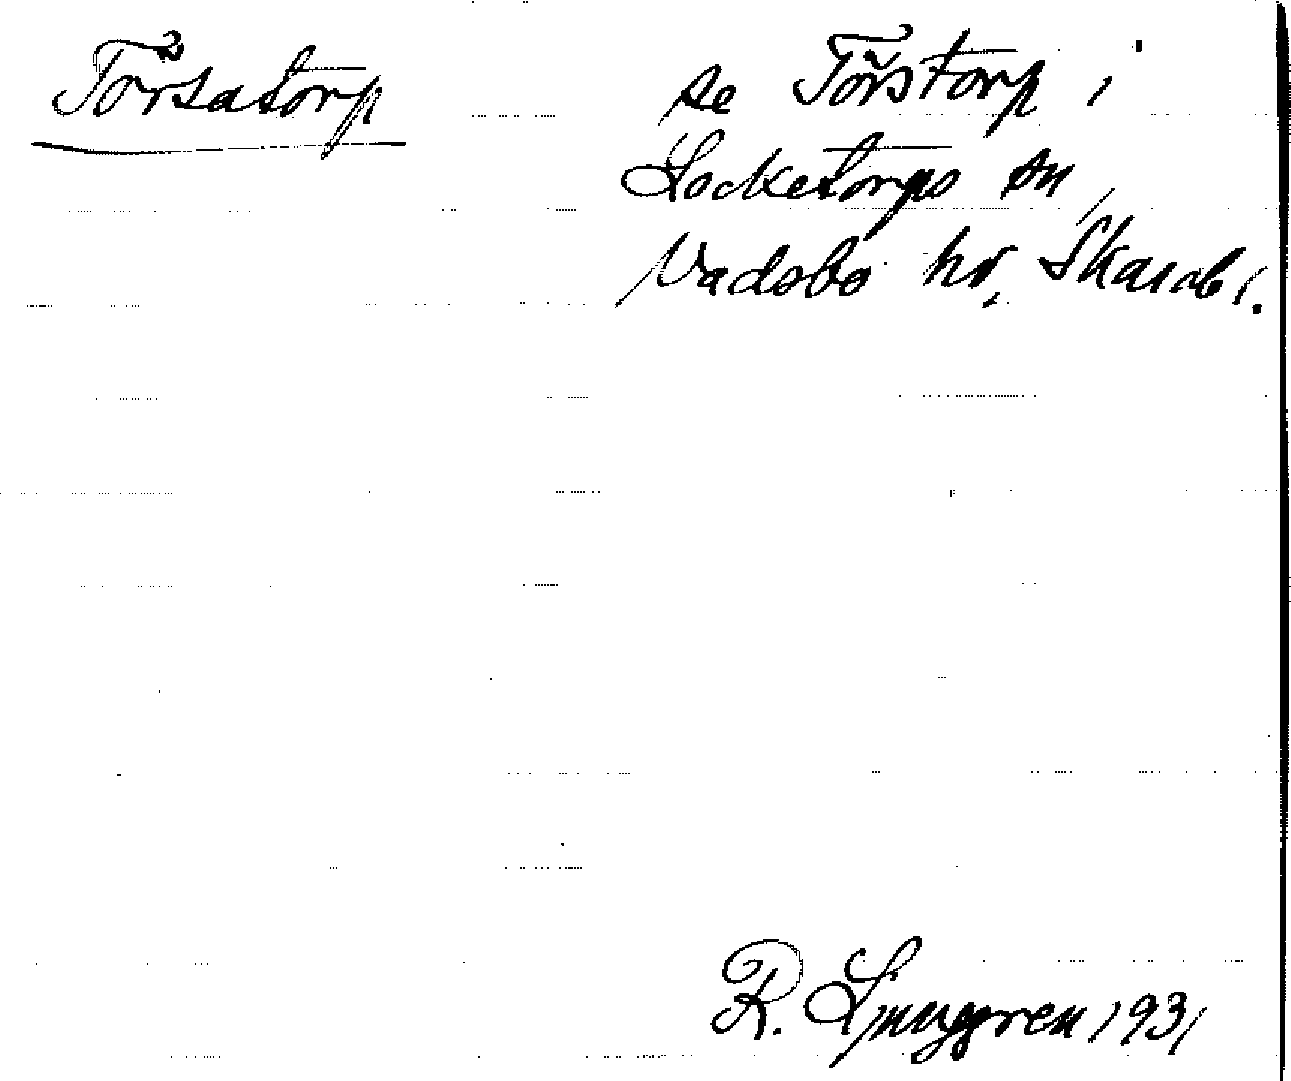 Törsatorp
se Törstorp i
Locketorps sn,
Vadsbo hd, Skarab l.
R. Ljunggren 1931